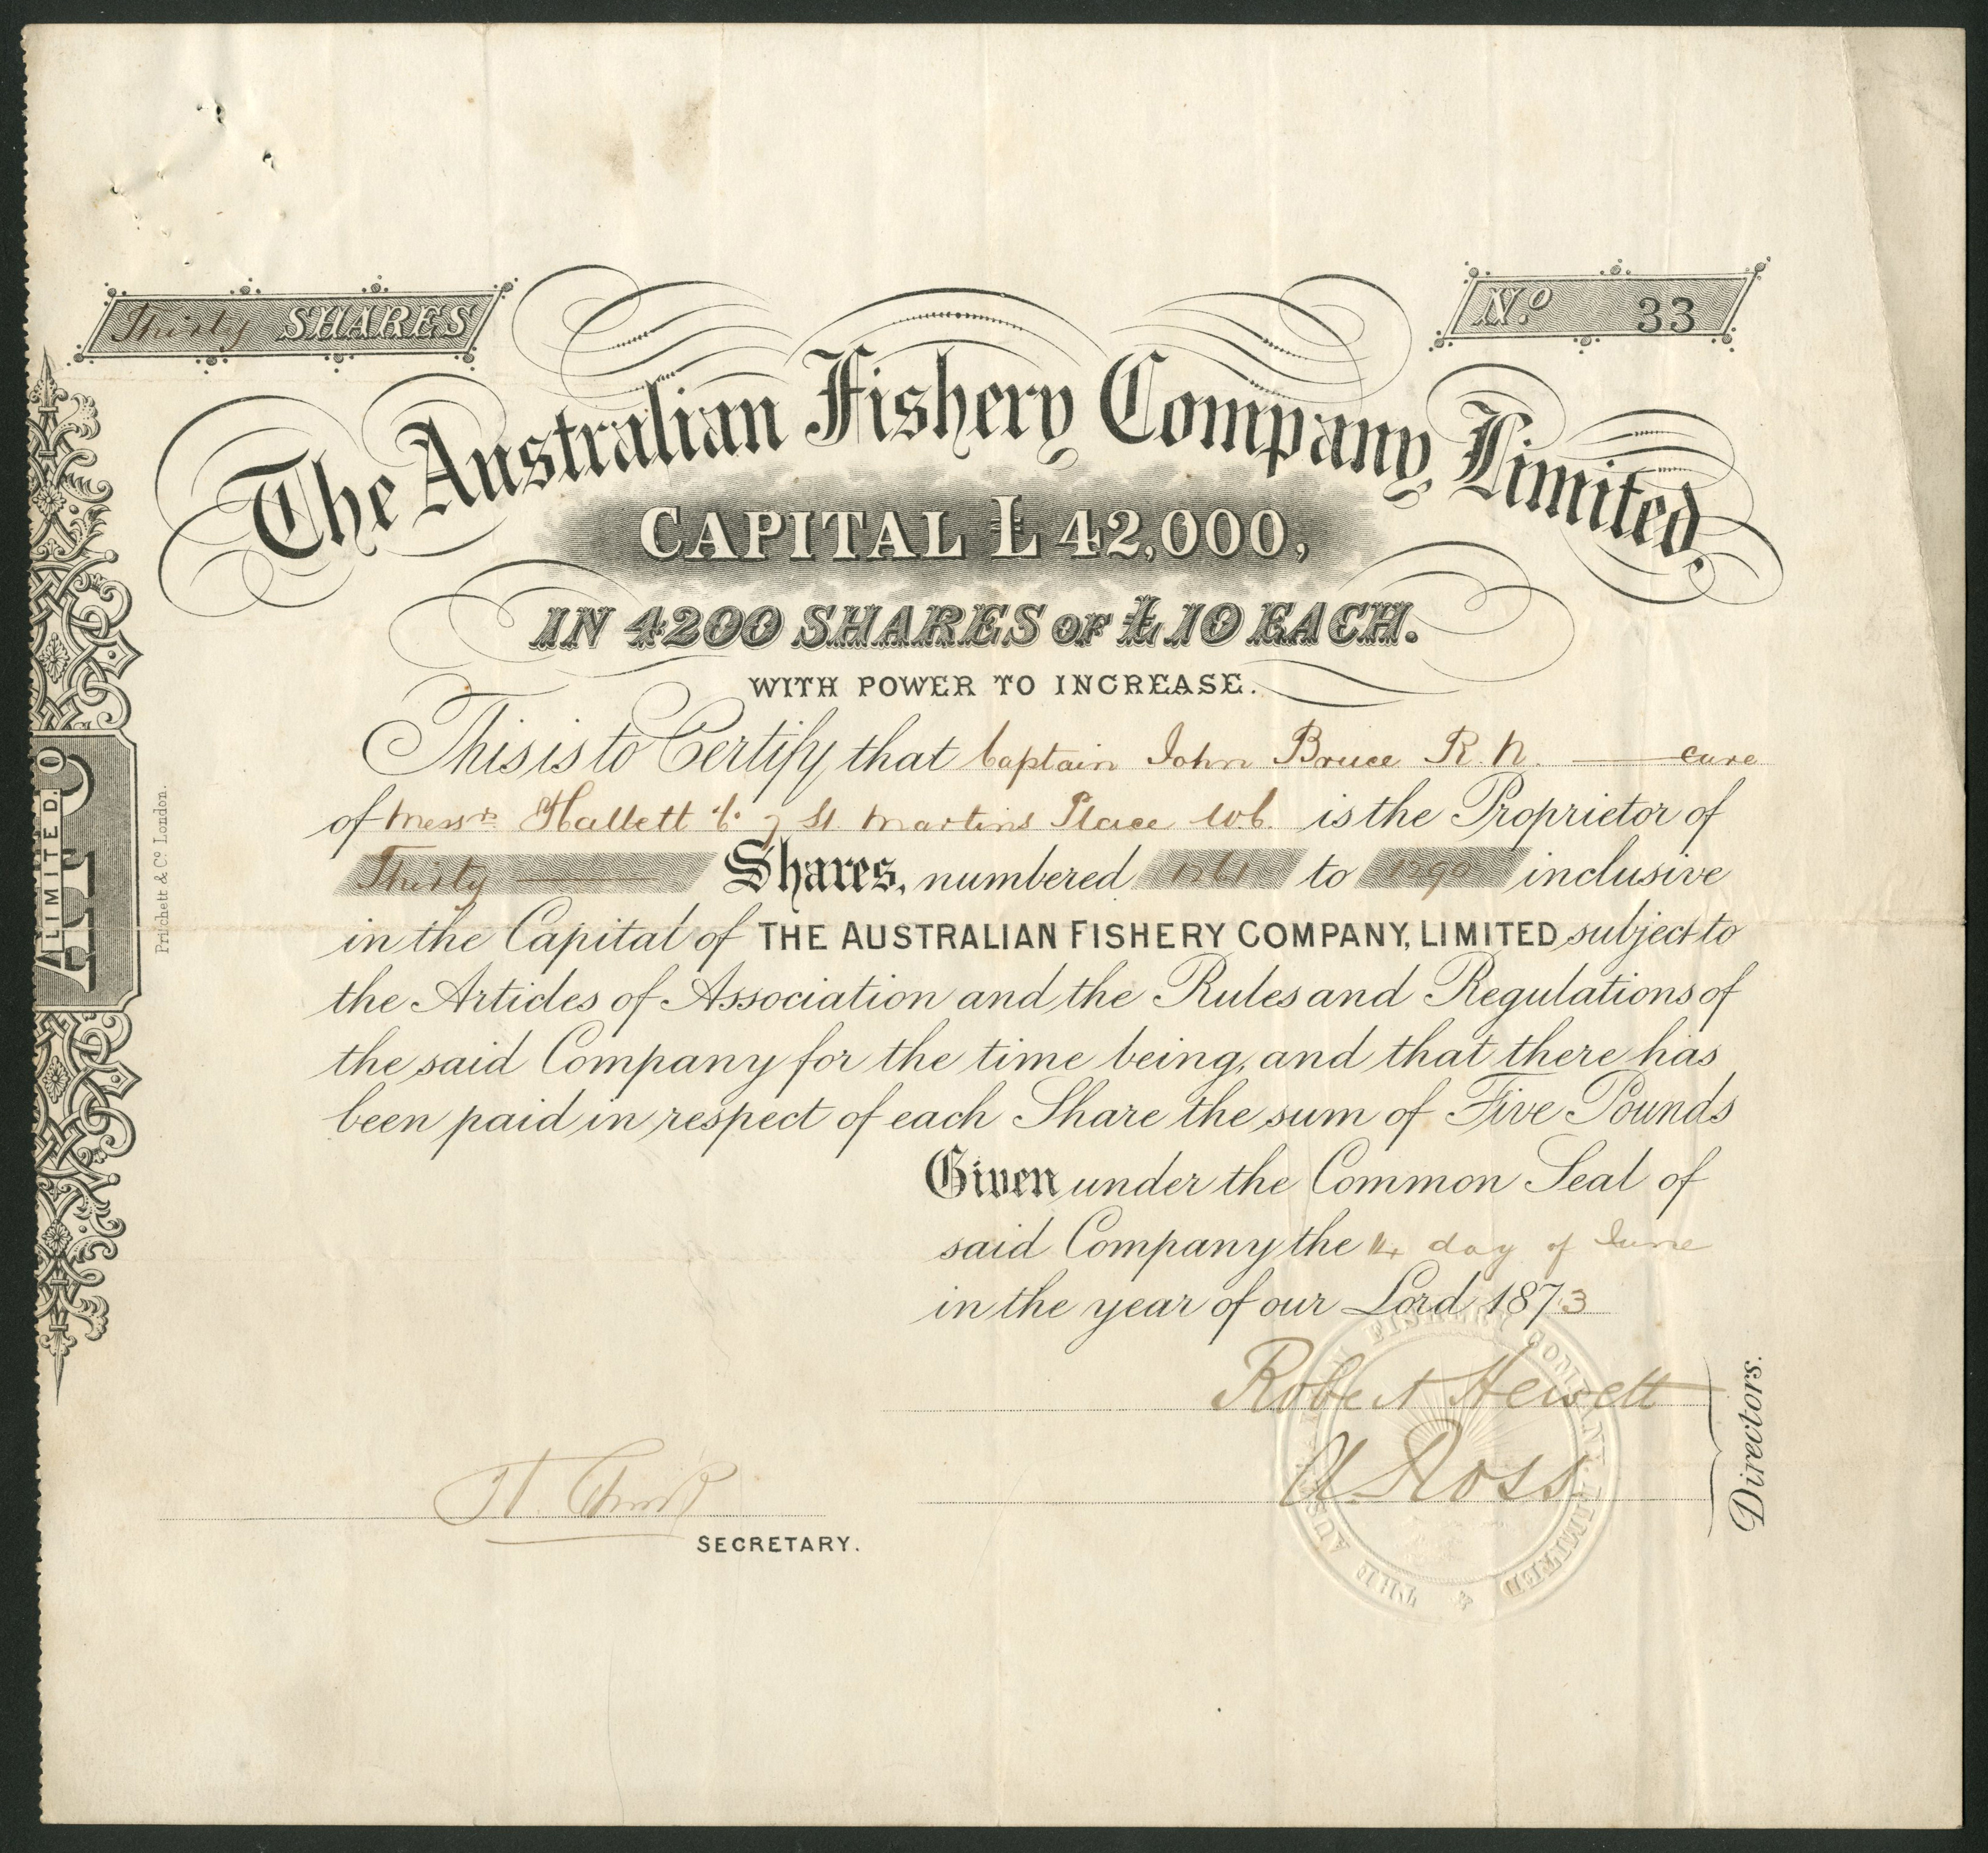 Thirty SHARES
No. 33
The Australian Fishery Company, Limited.
CAPITAL £42,000,
IN 4200 SHARES OF £10 EACH.
WITH POWER TO INCREASE.
This is to Certify that Captain John Bruce R.N. — care
of Messrs Hallett & Co 7 St. Martins Place W.C. is the Proprietor of
Thirty — Shares, numbered 1261 to 1290 inclusive
in the Capital of THE AUSTRALIAN FISHERY COMPANY, LIMITED subject to
the Articles of Association and the Rules and Regulations of
the said Company for the time being, and that there has
been paid in respect of each Share the sum of Five Pounds
Given under the Common Seal of
said Company the 14 day of June
in the year of our Lord 1873
Robert Hewett
A. Ross
Directors.
SECRETARY.
THE AUSTRALIAN FISHERY COMPANY LIMITED
LIMITED.
Pritchett & Co. London.